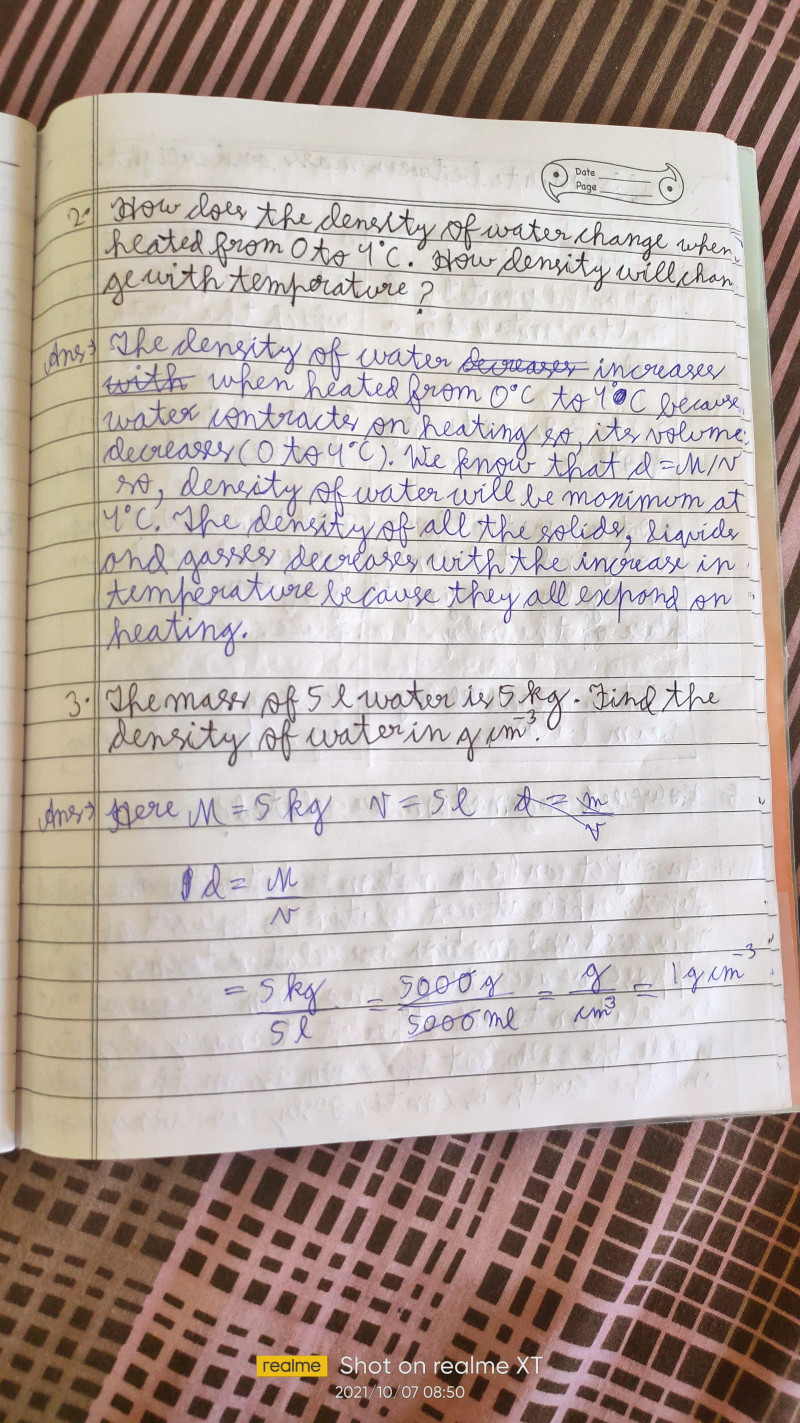 Date
Page
2. How does the density of water change when
heated from 0 to 4°C. How density will chan
ge with temperature?
Ans→ The density of water decreases increases
with when heated from 0°C to 4°C because
water contracts on heating so, its volume
decreases (0 to 4°C). We know that d=M/V
so, density of water will be maximum at
4°C. The density of all the solids, liquids
and gasses decreases with the increase in
temperature because they all expand on
heating.
3. The mass of 5 l water is 5 kg. Find the
density of water in g cm⁻³.
Ans→ Here M = 5 kg V = 5 l d = m/v
d = M/V
= 5 kg/5 l = 5000 g/5000 ml = g/cm³ = 1 g cm⁻³
realme Shot on realme XT
2021/10/07 08:50